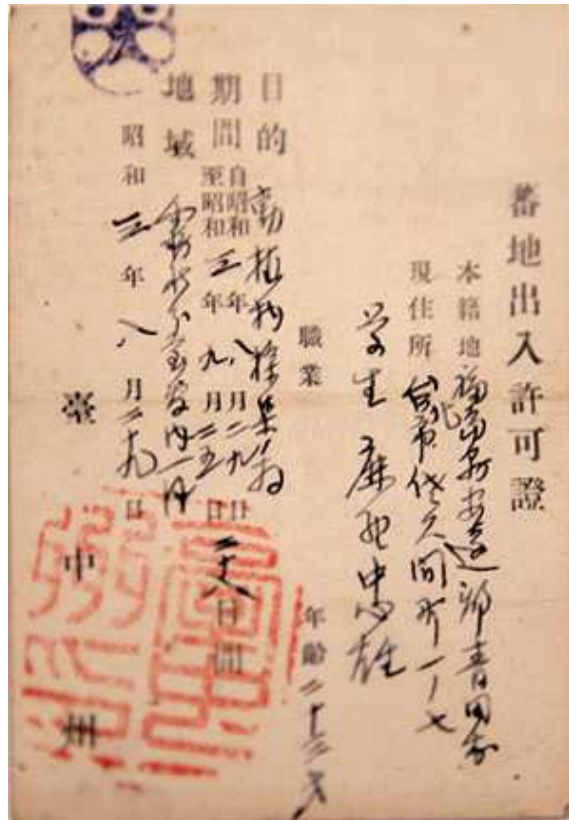 蕃地出入許可證
本籍地 福島縣安達郡
現住所 台北市佐久間町一ノ七
職業
学生 鹿野忠雄
年齢 二十三才
目的 動植物採集ノ為
期間 自昭和三年八月二九日
至昭和三年九月二五日 二十八日間
地域 霧社分室管内一円
昭和三年八月二十九日
臺中州